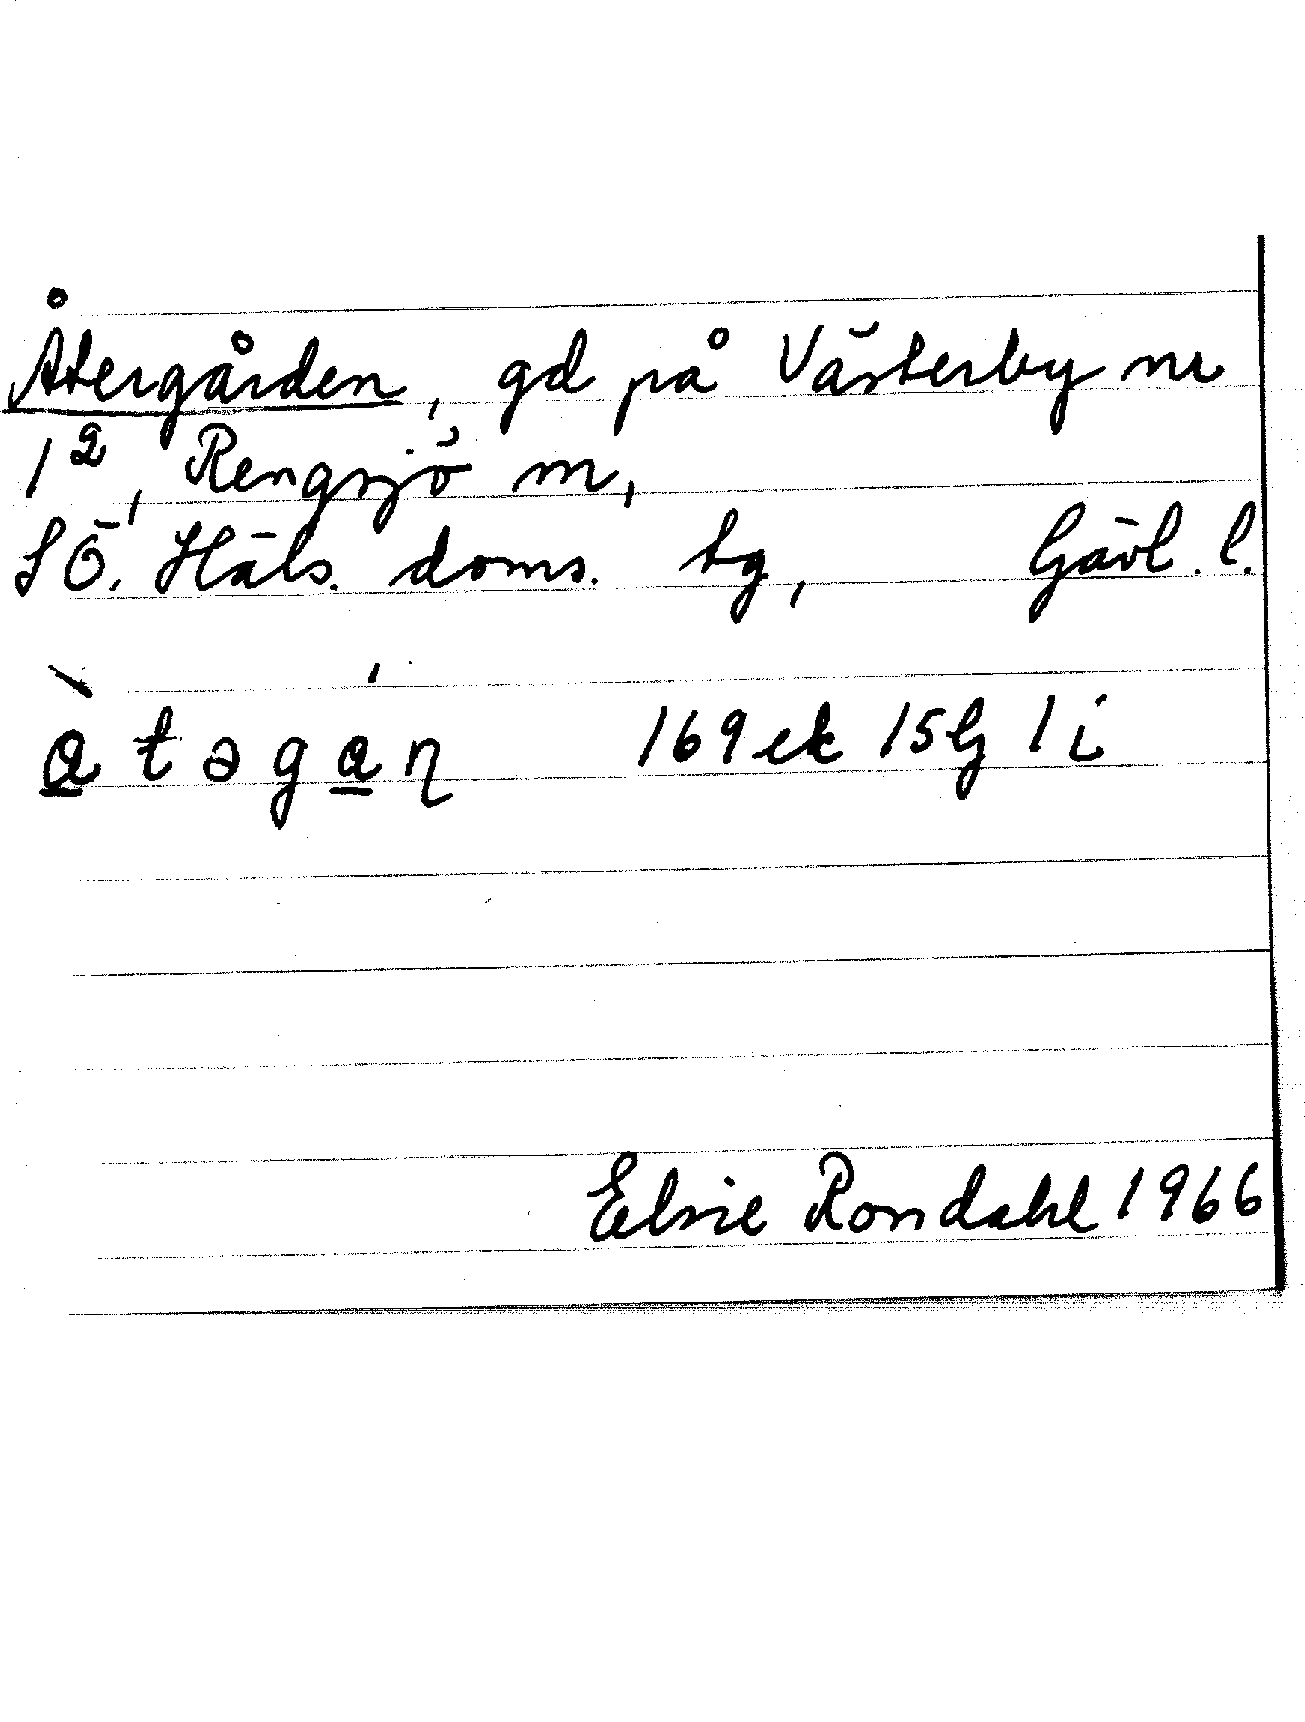 Återgården, gd på Västerby nr
1², Rengsjö sn,
SÖ. Häls. doms. tg, Gävl. l.
à̲ t ə g á̲ ɳ 169 ek 15G 1 i
Elsie Rondahl 1966